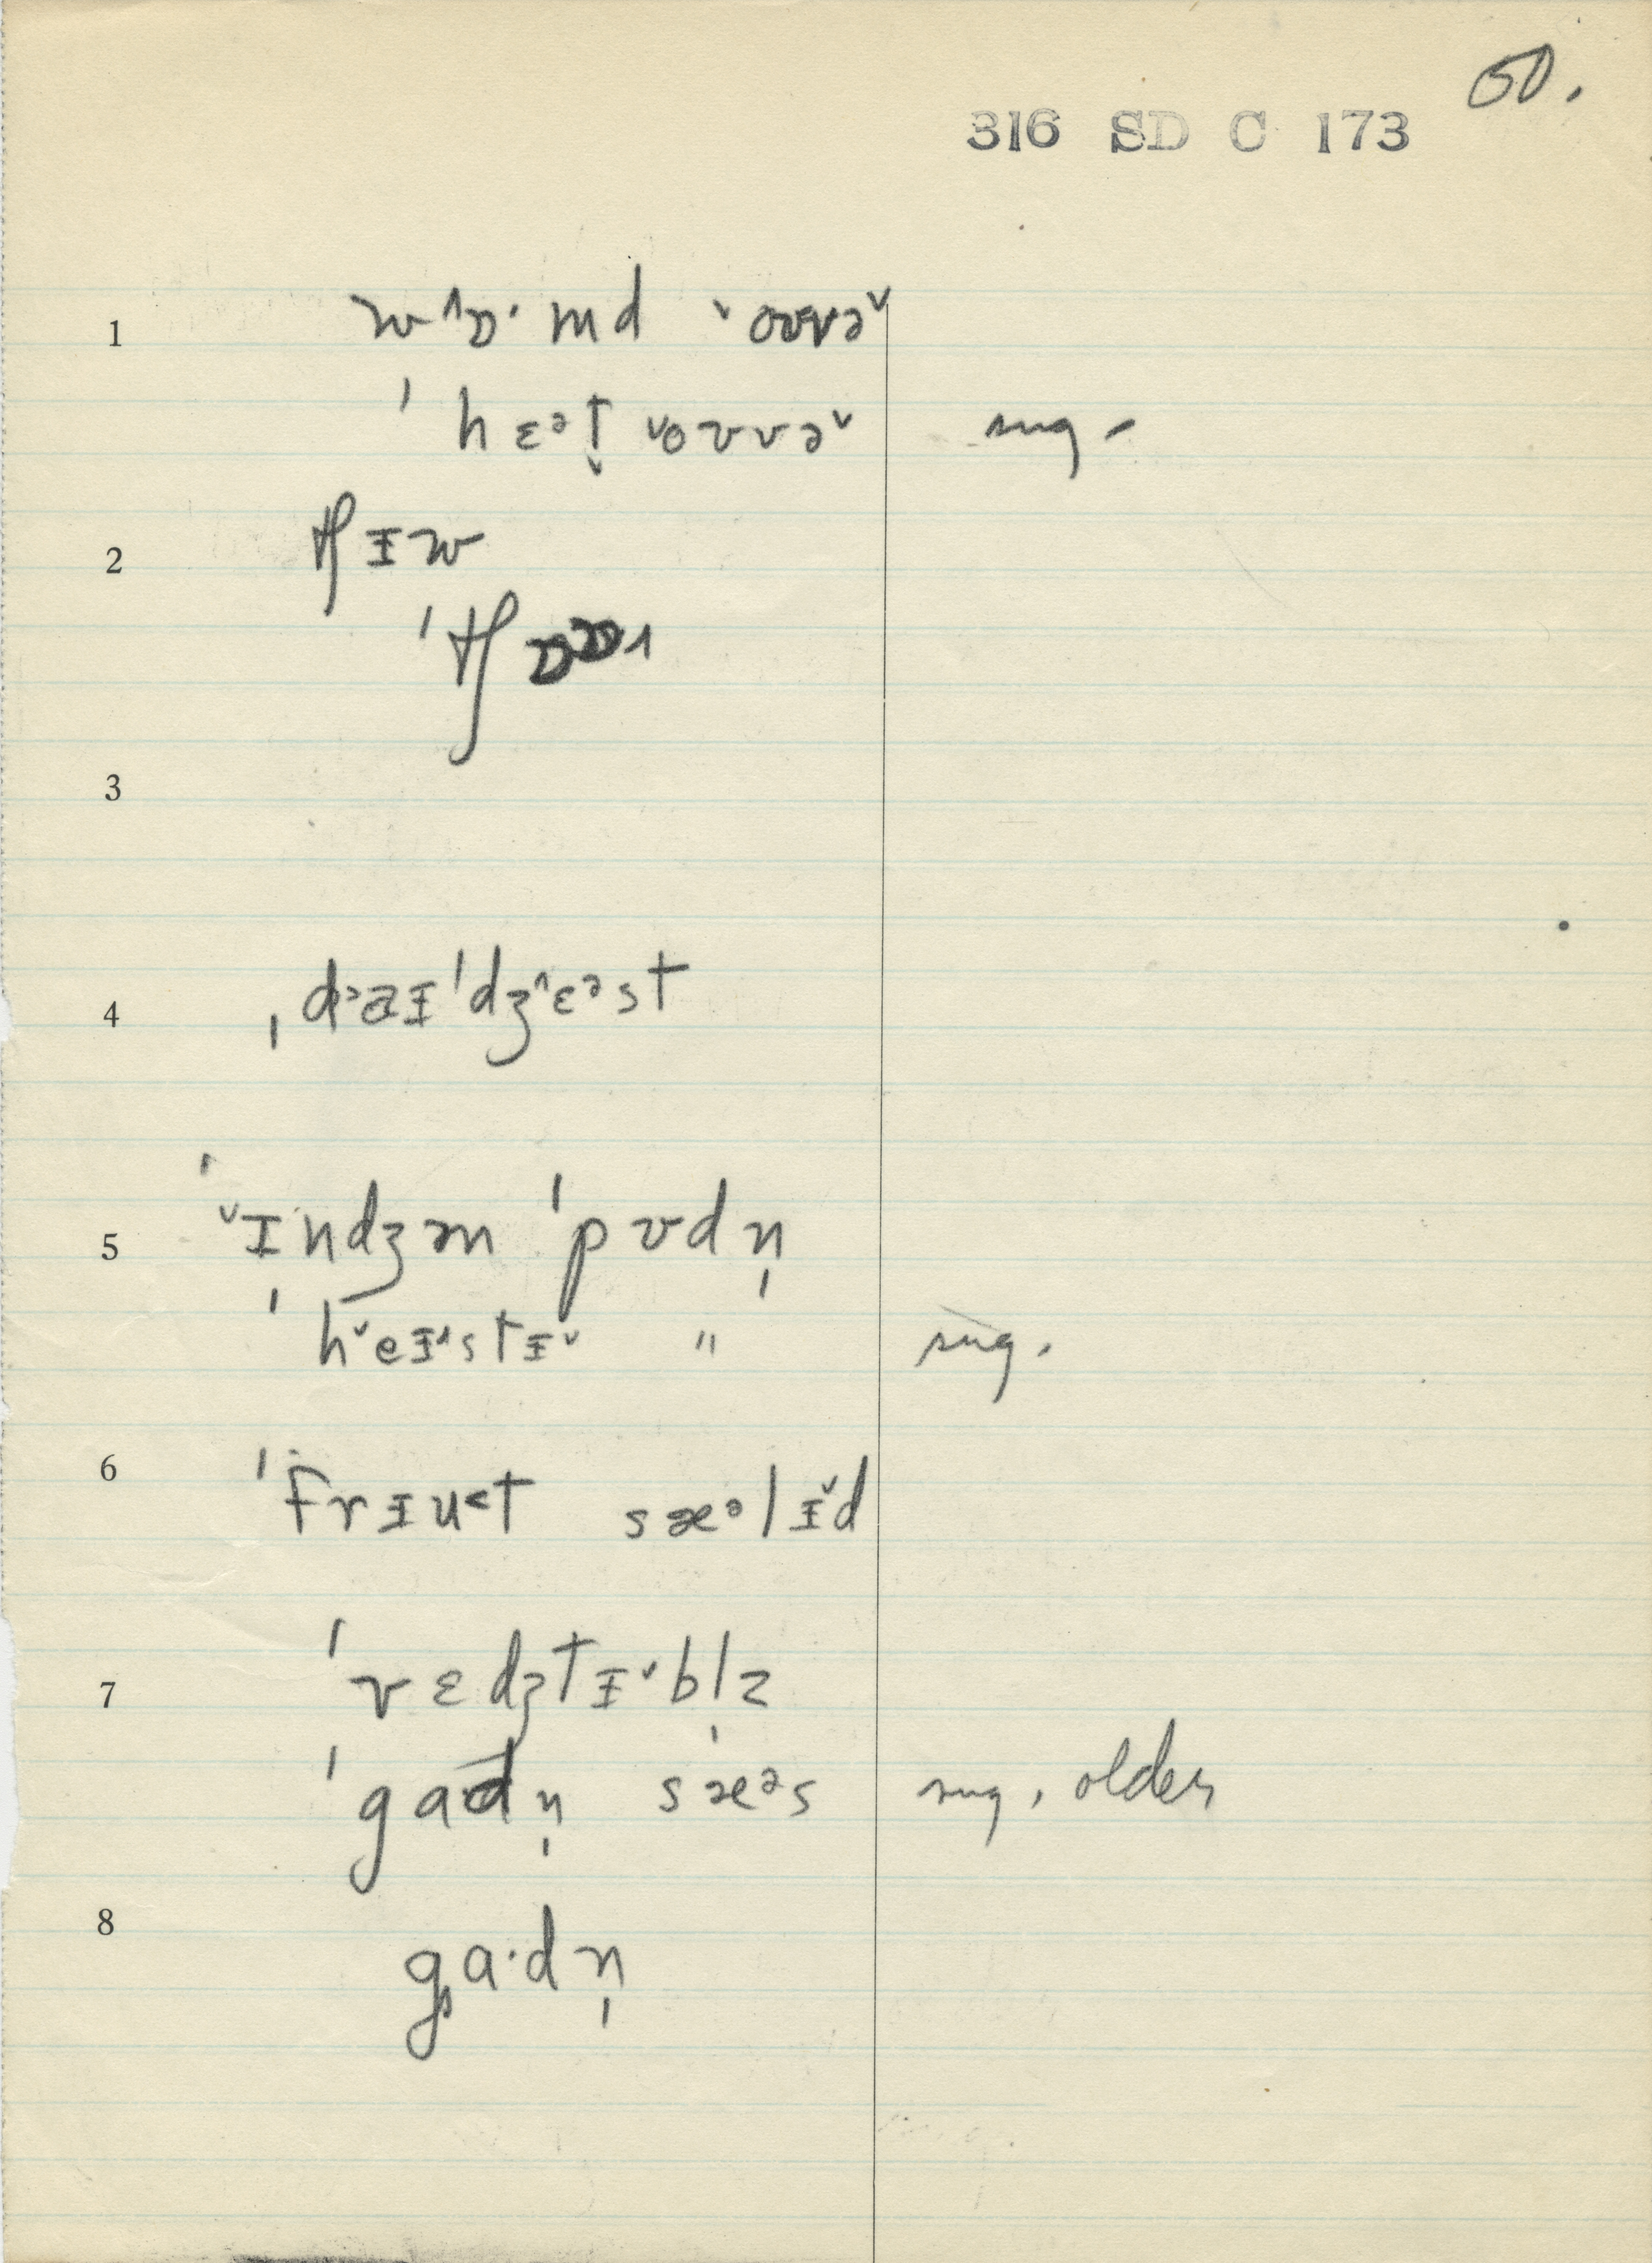 50.
316 SD C 173
1 wˆɒ· md ˇoʊvəˇ
ˈhɛᵊt̬ ˇoʊvəˇ sug.
2 tʃɪw
ˈtʃɒɒ˄
3
4 ˌdᵊaɪˈdʒ˄ɛᵊst
5 ˈˇɪndʒən ˈpʊdn̩
ˈhˇeɪ˄stɪˇ " sug.
6 ˈfrɪu˂t sæᵊlɪˇd
7 ˈvɛdʒtɪˇbl̩z
ˈgɑdn̩ sæᵊs sug, older
8 gɑ·dn̩